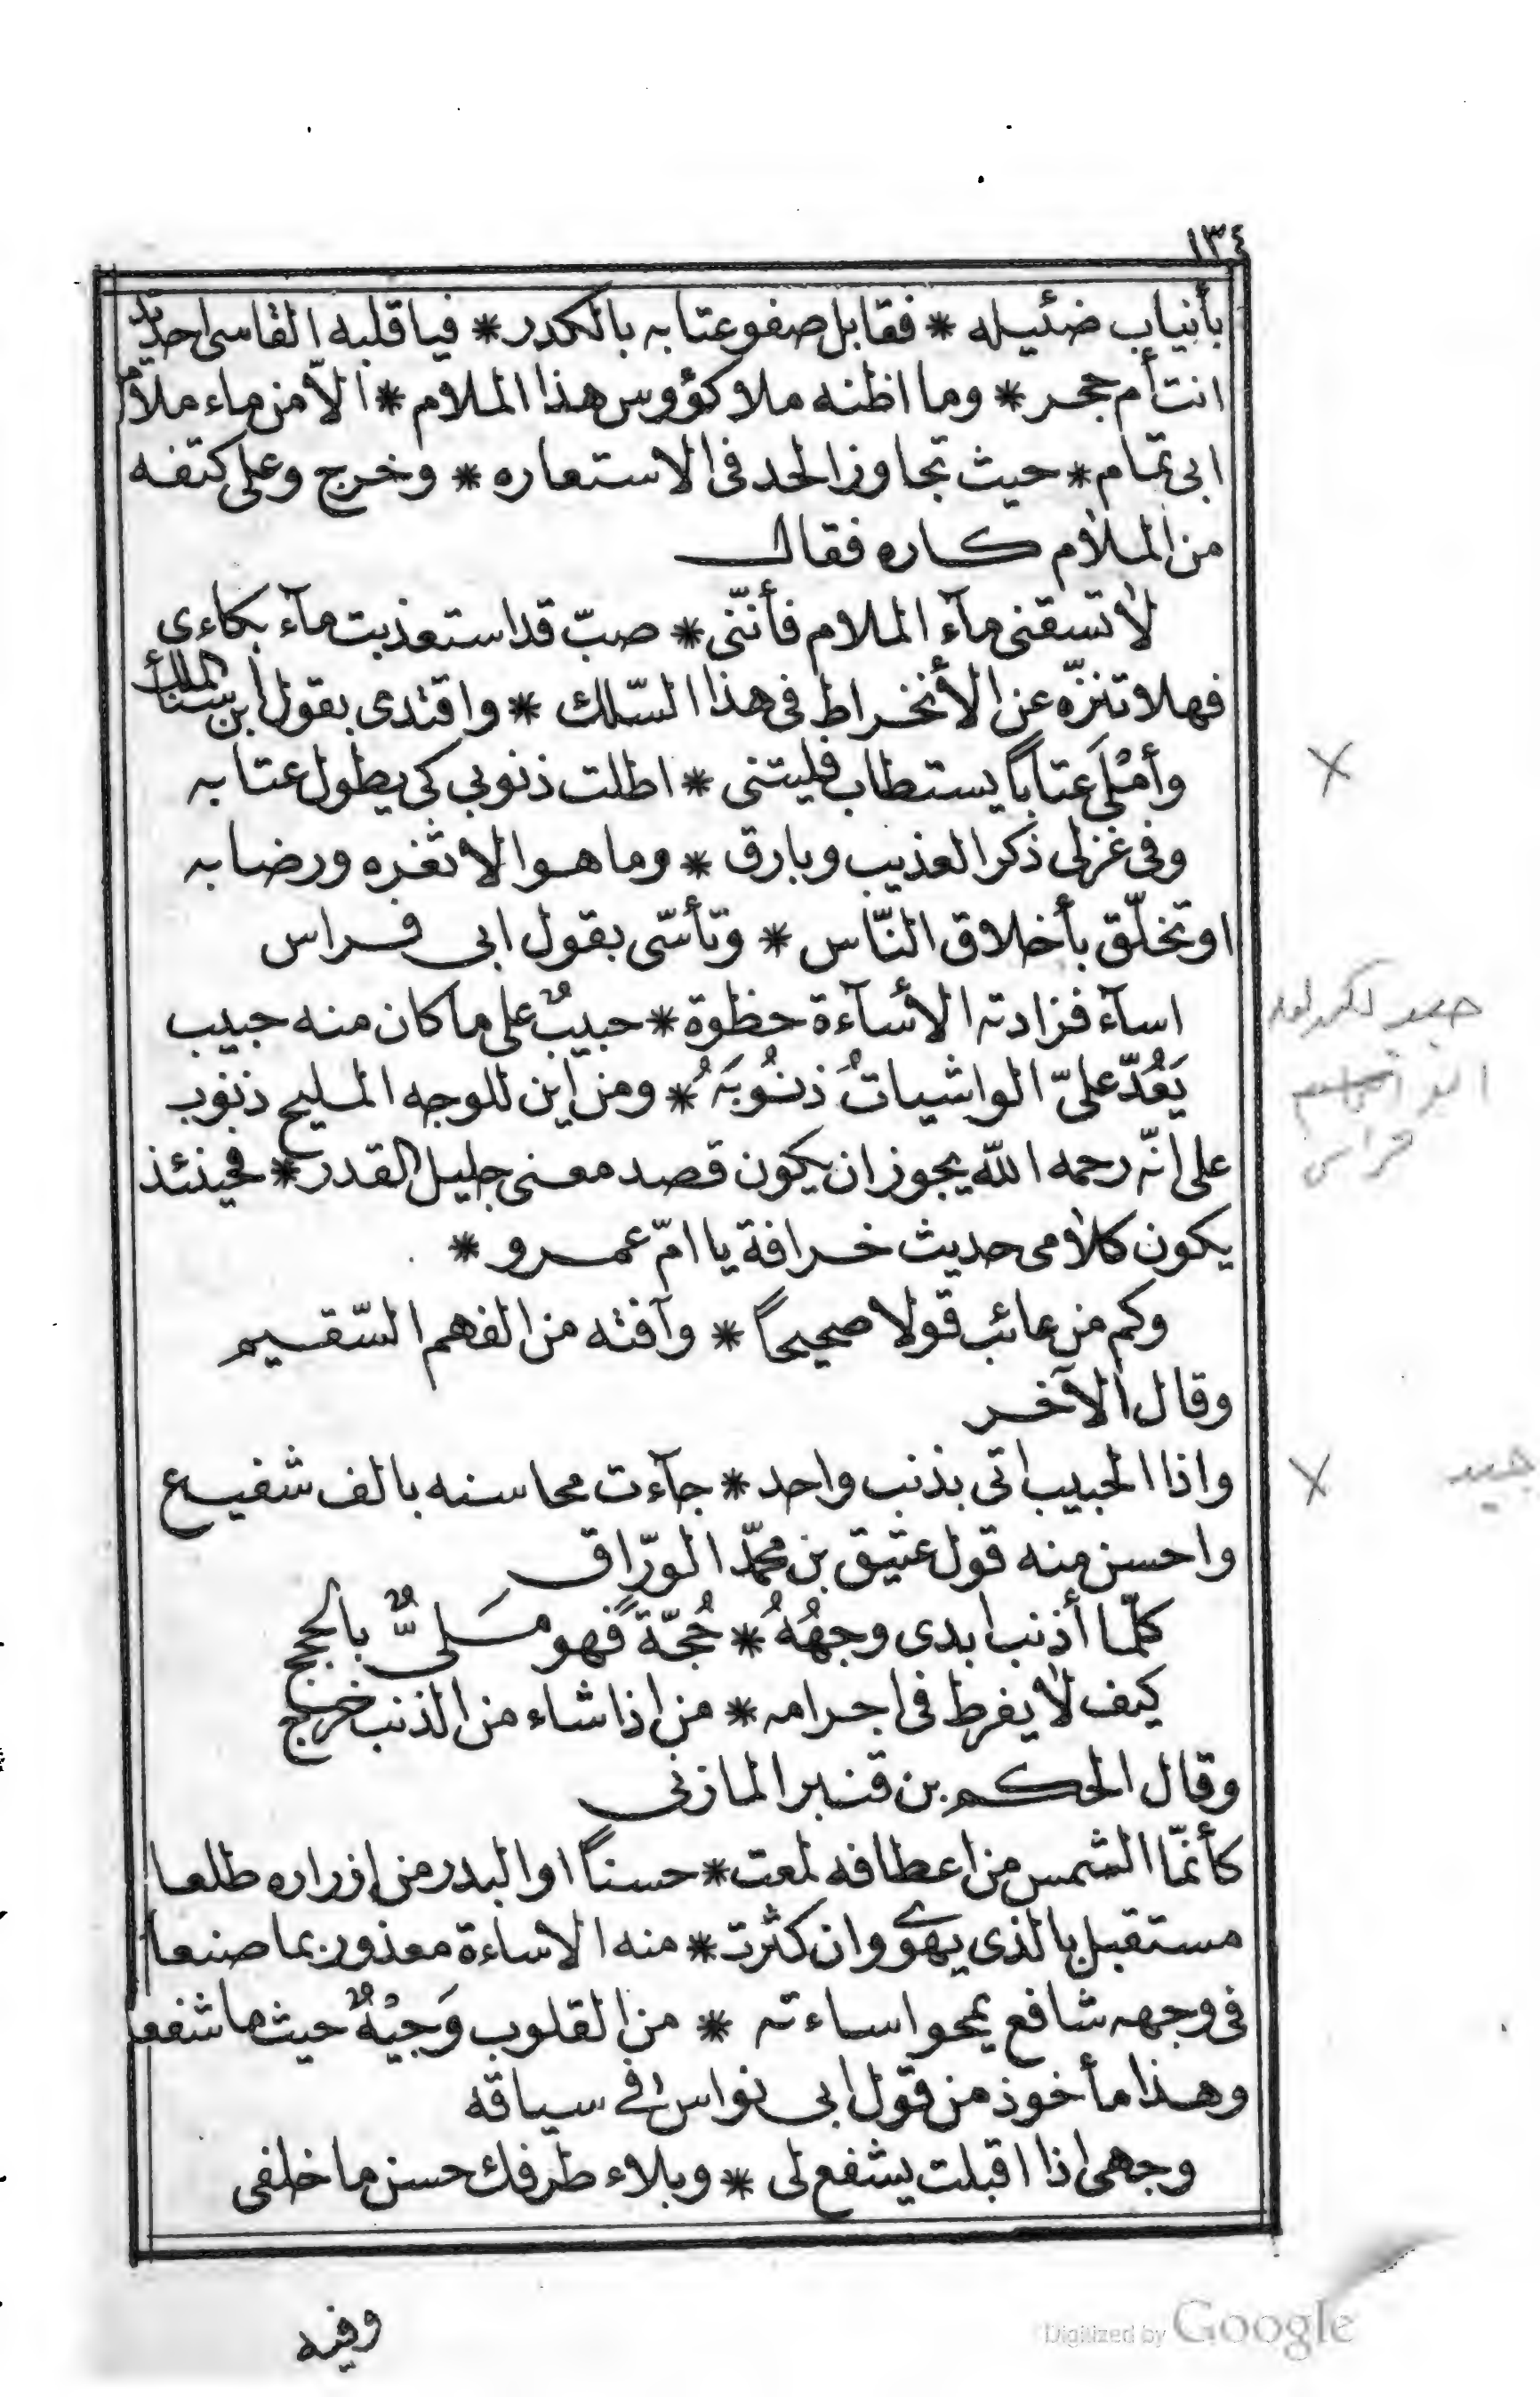 ١٣٤
بأنياب ضئيله * فقابل صفو عتابه بالكدر * فيا قلبه القاسى احديد
انت أم حجر * وما اظنه ملا كؤوس هذا الملام * الّا من ماء ملام
ابى تمام * حيث تجاوز الحد فى الاستعاره * وخرج وعلى كتفه
من الملام كاره فقال
لا تسقنى مآء الملام فأننّى * صبّ قد استعذبت مآء بكاءى
فهلا تنزّه عن الأنخراط فى هذا السّلك * واقتدى بقول ابن سنأ الملك
وأمْلَى عتاباً يستطاب فليتنى * اطلت ذنوبى كى يطول عتابه
وفى غزلى ذكر العذيب وبارق * وما هو الا ثغره ورضابه
او تخلّق بأخلاق النّاس * وتأسّى بقول ابى فراس
اسآء فزادته الأسآءة حظوة * حبيبٌ على ما كان منه حبيب
يَعُدّ علىّ الواشياتُ ذنُوبَهُ * ومن اين للوجه المليح ذنوب
على انّه رحمه اللّه يجوز ان يكون قصد معنى جليل القدر * فحينئذ
يكون كلامى حديث خرافة يا امّ عمرو *
وكم من عائب قولا صحيحاً * وآفته من الفهم السّقيم
وقال الآخر
واذا الحبيب اتى بذنب واحد * جآءت محاسنه بالف شفيع
واحسن منه قول عتيق بن محمّد الورّاق
كلّما أذنب ابدى وجهُهُ * حُجّةً فهو مَلىٌّ بالحجج
كيف لا يفرط فى اجرامه * من اذا شاء من الذنب خرج
وقال الحكم بن قنبر المازنى
كأنمّا الشمس من اعطافه لمعت * حسناً او البدر من ازراره طلعا
مستقبل بالذى يهوى وان كثرت * منه الاساءة معذور بما صنعا
فى وجهه شافع يمحو اساءته * من القلوب وَجيْهٌ حيث ما شفعا
وهذا مأخوذ من قول ابى نواس فى سياقه
وجهى اذا اقبلت يشفع لى * وبلاء طرفك حسن ما خلفى
وفيه
Digitized by Google